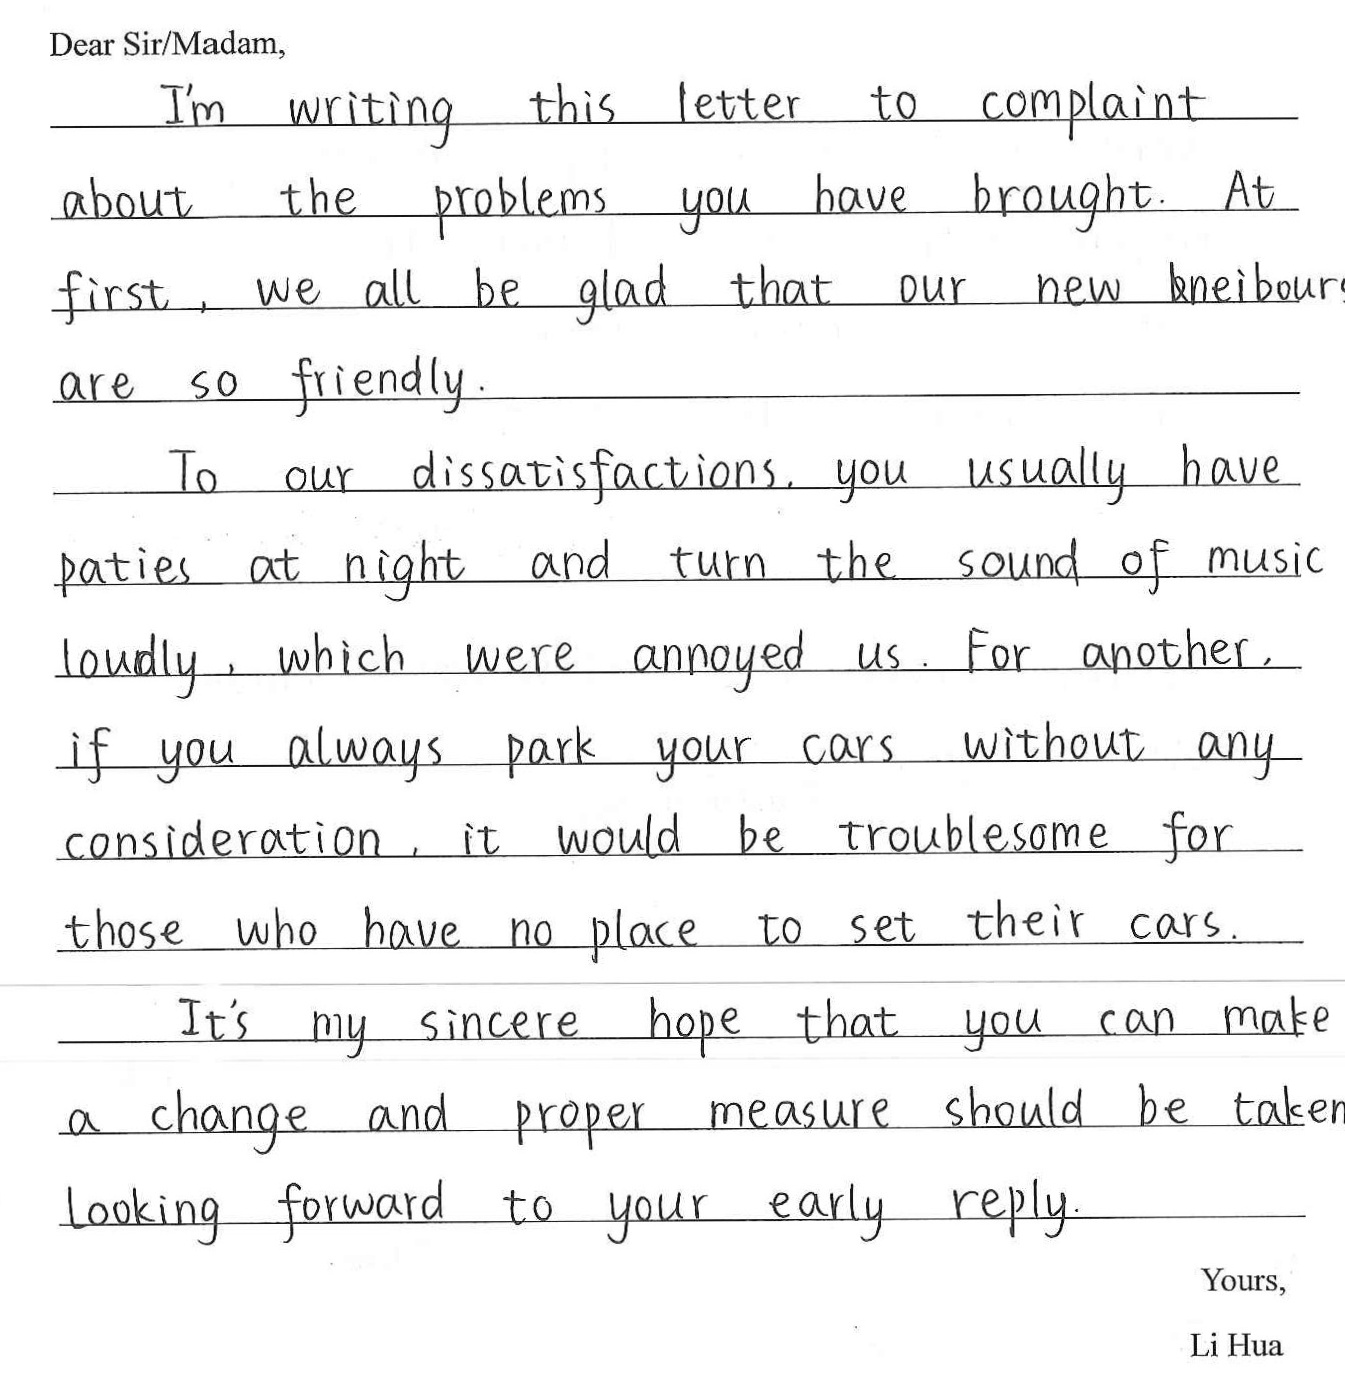 Dear Sir/Madam,
I'm writing this letter to complaint
about the problems you have brought. At
first, we all be glad that our new kneibours
are so friendly.
To our dissatisfactions, you usually have
paties at night and turn the sound of music
loudly, which were annoyed us. For another,
if you always park your cars without any
consideration, it would be troublesome for
those who have no place to set their cars.
It's my sincere hope that you can make
a change and proper measure should be taken
Looking forward to your early reply.
Yours,
Li Hua